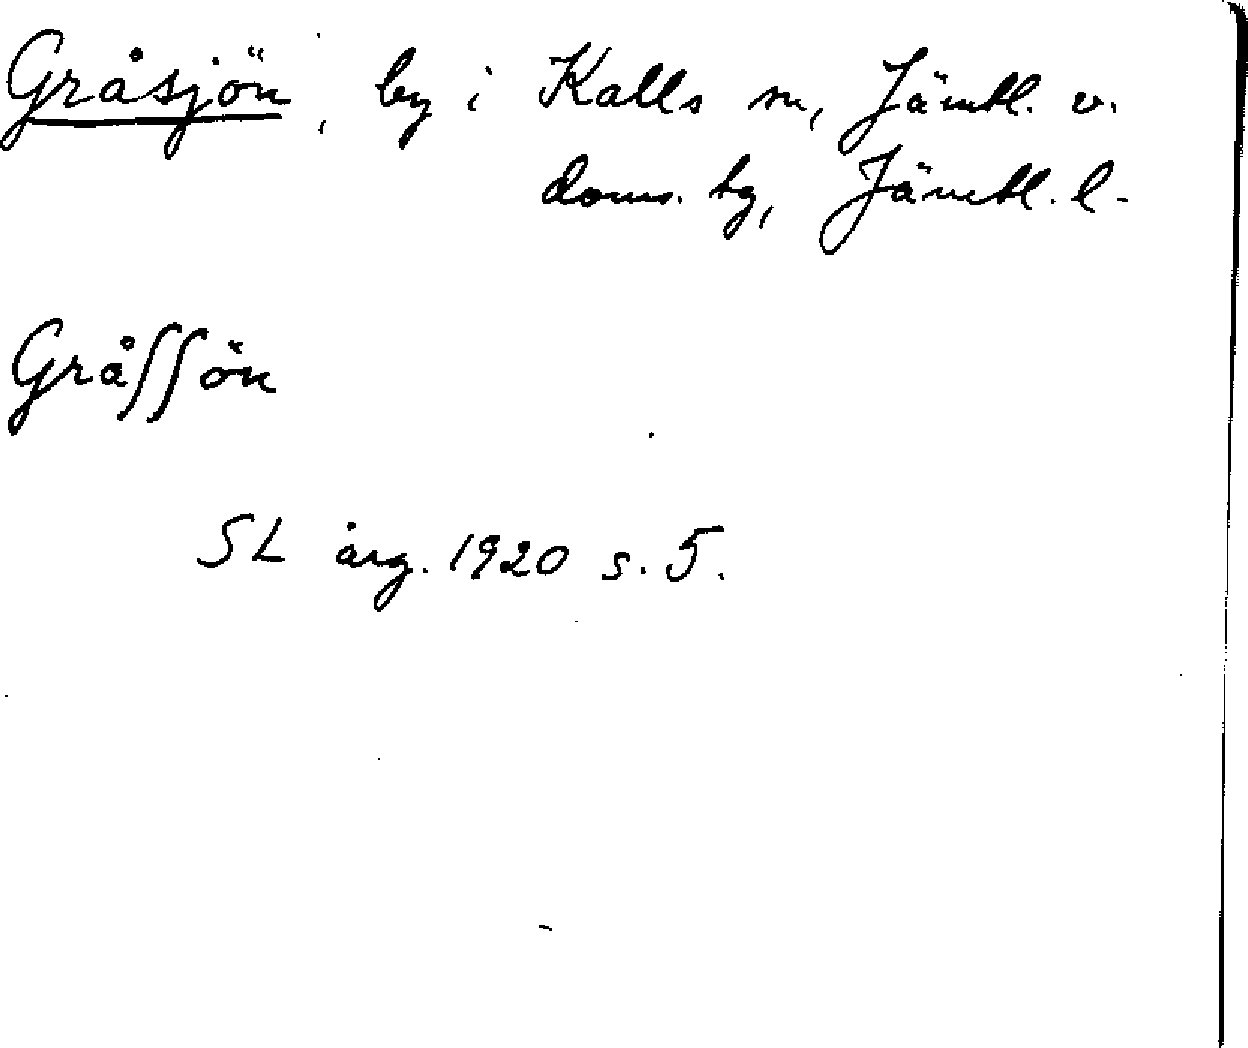 Gråsjön, by i Kalls sn, Jämtl. v.
doms. bg, Jämtl. l.
Gråſſön
SL årg. 1920 s. 5.